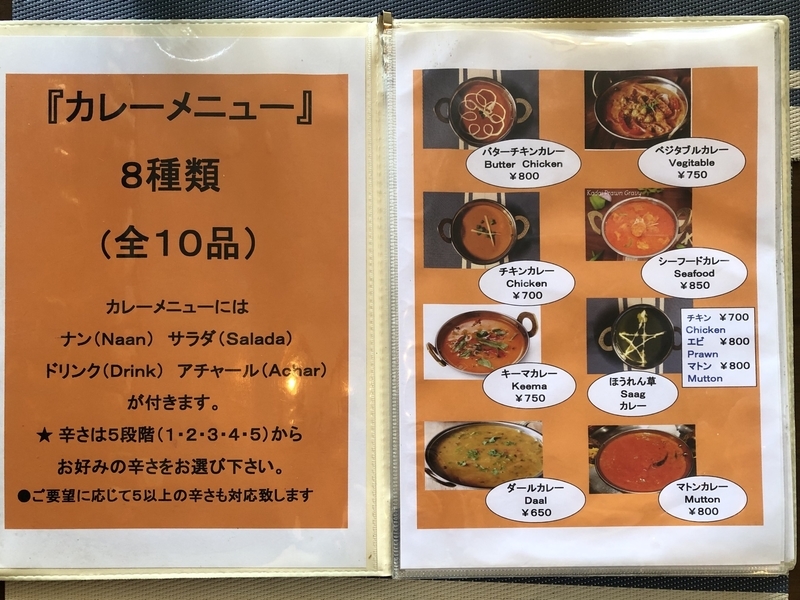 『カレーメニュー』
８種類
（全１０品）
カレーメニューには
ナン（Naan）　サラダ（Salada）
ドリンク（Drink）　アチャール（Achar）
が付きます。
★ 辛さは５段階（１・２・３・４・５）から
お好みの辛さをお選び下さい。
●ご要望に応じて５以上の辛さも対応致します
バターチキンカレー
Butter Chicken
￥800
ベジタブルカレー
Vegitable
￥750
チキンカレー
Chicken
￥700
Kadai Prawn Gravy
シーフードカレー
Seafood
￥850
キーマカレー
Keema
￥750
ほうれん草
Saag
カレー
チキン　￥700
Chicken
エビ　￥800
Prawn
マトン　￥800
Mutton
ダールカレー
Daal
￥650
マトンカレー
Mutton
￥800